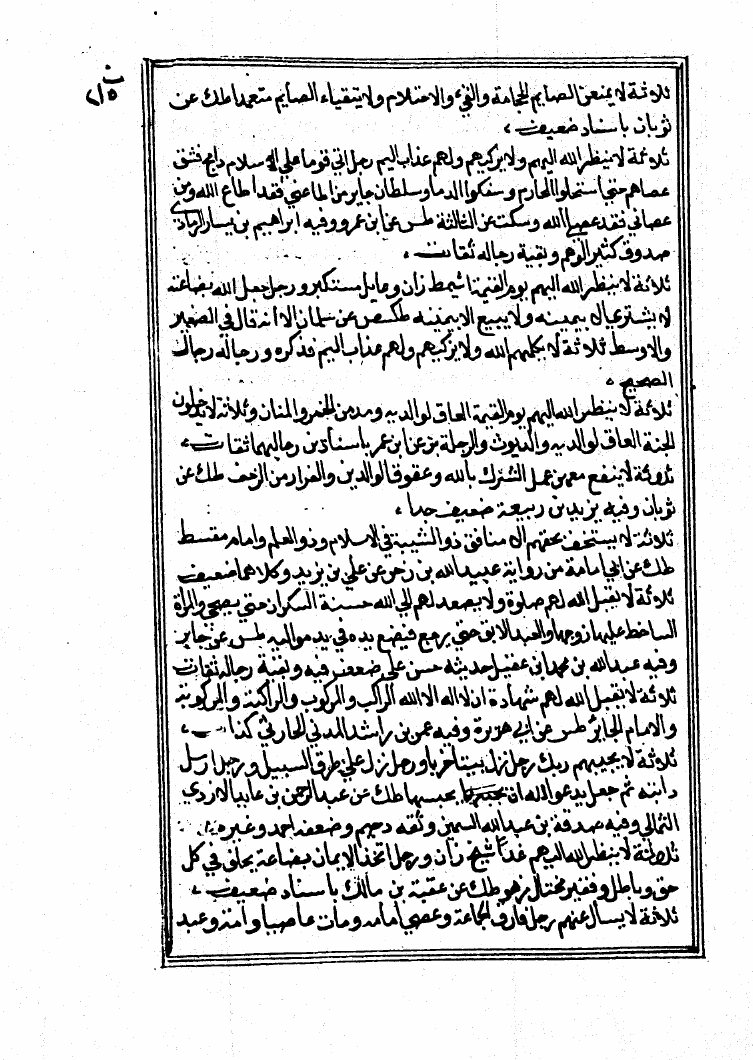 ٢١٥
ثلاثة لا يمنعن الصايم الحجامة والقيء والاحتلام ولا يتقياء الصايم متعمدا طك عن
ثوبان باسناد ضعيف ،
ثلاثة لا ينظر الله اليهم ولا يزكيهم ولهم عذاب اليم رجل اتي قوما علي الاسلام دامج فشق
عصاهم حتي استحلوا المحارم وسفكوا الدما وسلطان جاير من اطاعني فقد اطاع الله ومن
عصاني فقد عصي الله وسكت عن الثالثة طس عن ابن عمرو وفيه ابراهيم بن بسار الرمادي
صدوق كثير الوهم وبقية رجاله ثقات ،
ثلاثة لا ينظر الله اليهم يوم القيمة اشيمط زان وعايل مستكبر ورجل جعل الله بضاعته
لا يشتري الا بيمينه ولا يبيع الا بيمينه طكص عن سلمان الا انه قال في الصغير
والاوسط ثلاثة لا يكلمهم الله ولا يزكيهم ولهم عذاب اليم فذكره ورجاله رجال
الصحيح ،
ثلاثة لا ينظر الله اليهم يوم القيمة العاق لوالديه ومدمن الخمر والمنان وثلاثة لا يدخلون
الجنة العاق لوالديه والديوث والرجلة بز عن ابن عمر باسنادين رجالهما ثقات ،
ثلاثة لا ينفع معهن عمل الشرك بالله وعقوق الوالدين والفرار من الزحف طك عن
ثوبان وفيه يزيد بن ربيعة ضعيف جدا ،
ثلاثة لا يستخف بحقهم الا منافق ذو الشيبة في الاسلام وذو العلم وامام مقسط
طك عن ابي امامة من رواية عبيد الله بن زحر عن علي بن يزيد وكلاهما ضعيف
ثلاثة لا يقبل الله لهم صلوة ولا يصعد لهم الي الله حسنة السكران حتي يصحي والمراة
الساخط عليها زوجها والعبد الابق حتي يرجع فيضع يده في يد مواليه طس عن جابر
وفيه عبد الله بن محمد ابن عقيل حديثه حسن علي ضعف فيه وبقية رجاله ثقات
ثلاثة لا يقبل الله لهم شهادة ان لا اله الا الله الراكب والمركوب والراكبة والمركوبة
والامام الجائر طس عن ابي هريرة وفيه عمر بن راشد المدني الحارثي كذاب ،
ثلاثة لا يجيبهم ربك رجل نزل بيتا خربا ورجل نزل علي طرق السبيل ورجل ارسل
دابته ثم جعل يدعو الله ان يحبسها طك عن عبد الرحمن بن عايد الازدي
الثمالي وفيه صدقة بن عبد الله السمين وثقه دحيم وضعفه احمد وغيره ،
ثلاثة لا ينظر الله اليهم غدا شيخ زان ورجل اتخذ الايمان بضاعة يحلف في كل
حق وباطل وفقير مختال مزهو طك عن عقبة بن مالك باسناد ضعيف ،
ثلاثة لا يسال عنهم رجل فارق الجماعة وعصي امامه ومات عاصيا وامة وعبد